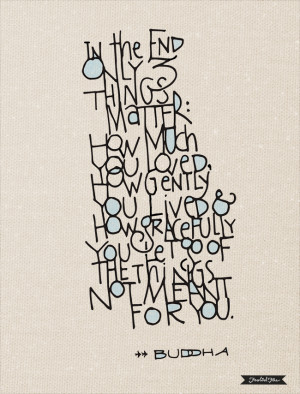 IN the END
ONLY 3
THINGS
MatteR:
HOW MUCH
YOU LOVED,
HOW GENTLY
YOU LIVED &
HOW GRACEFULLY
YOU Let GO OF
THE THINGS
NOT MEANT
FOR YOU.
BUDDHA